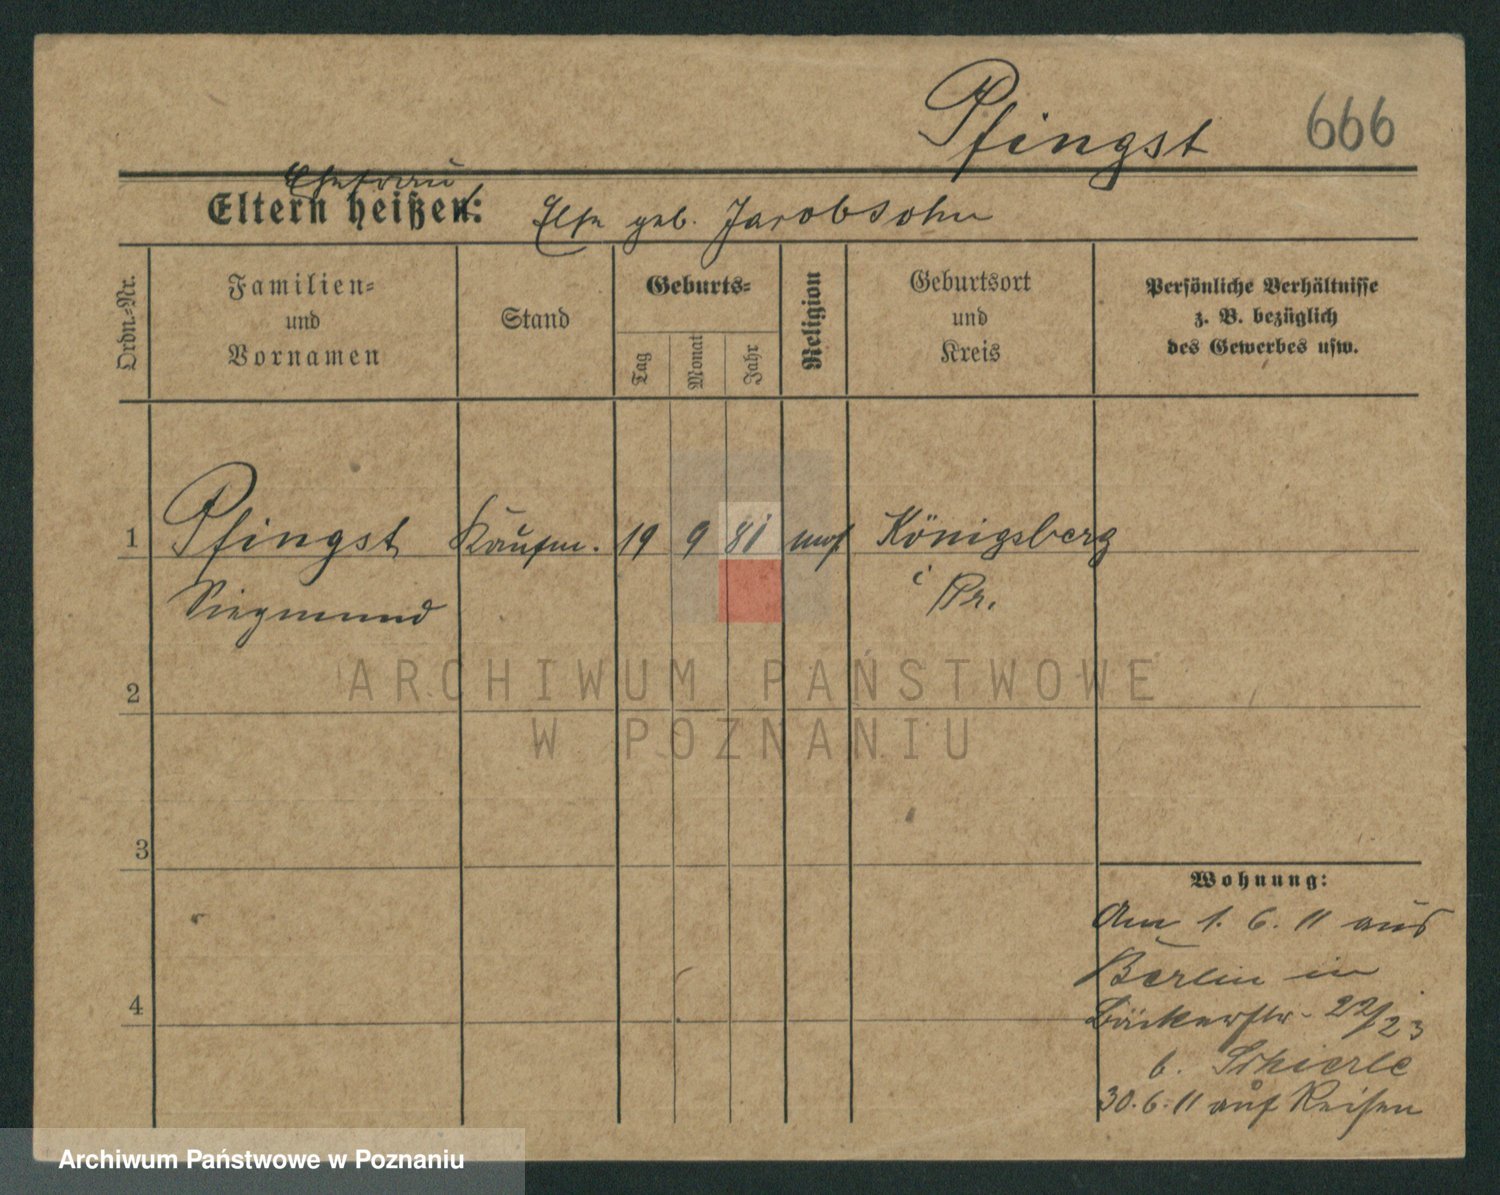 Pfingst 666
Ehefrau
Eltern heißen: Else geb. Jacobsohn
Ordn.-Nr.
Familien-
und
Vornamen
Stand
Geburts-
Tag
Monat
Jahr
Religion
Geburtsort
und
Kreis
Persönliche Verhältnisse
z. B. bezüglich
des Gewerbes usw.
1 Pfingst Kaufm. 19 9 81 mos Königsberg
Siegmund i Pr.
ARCHIWUM PAŃSTWOWE
W POZNANIU
2
3
4
Wohnung:
Am 1. 6. 11 aus
Berlin in
Bäckerstr. 22/23
b. Schierle
30.6.11 auf Reisen
Archiwum Państwowe w Poznaniu